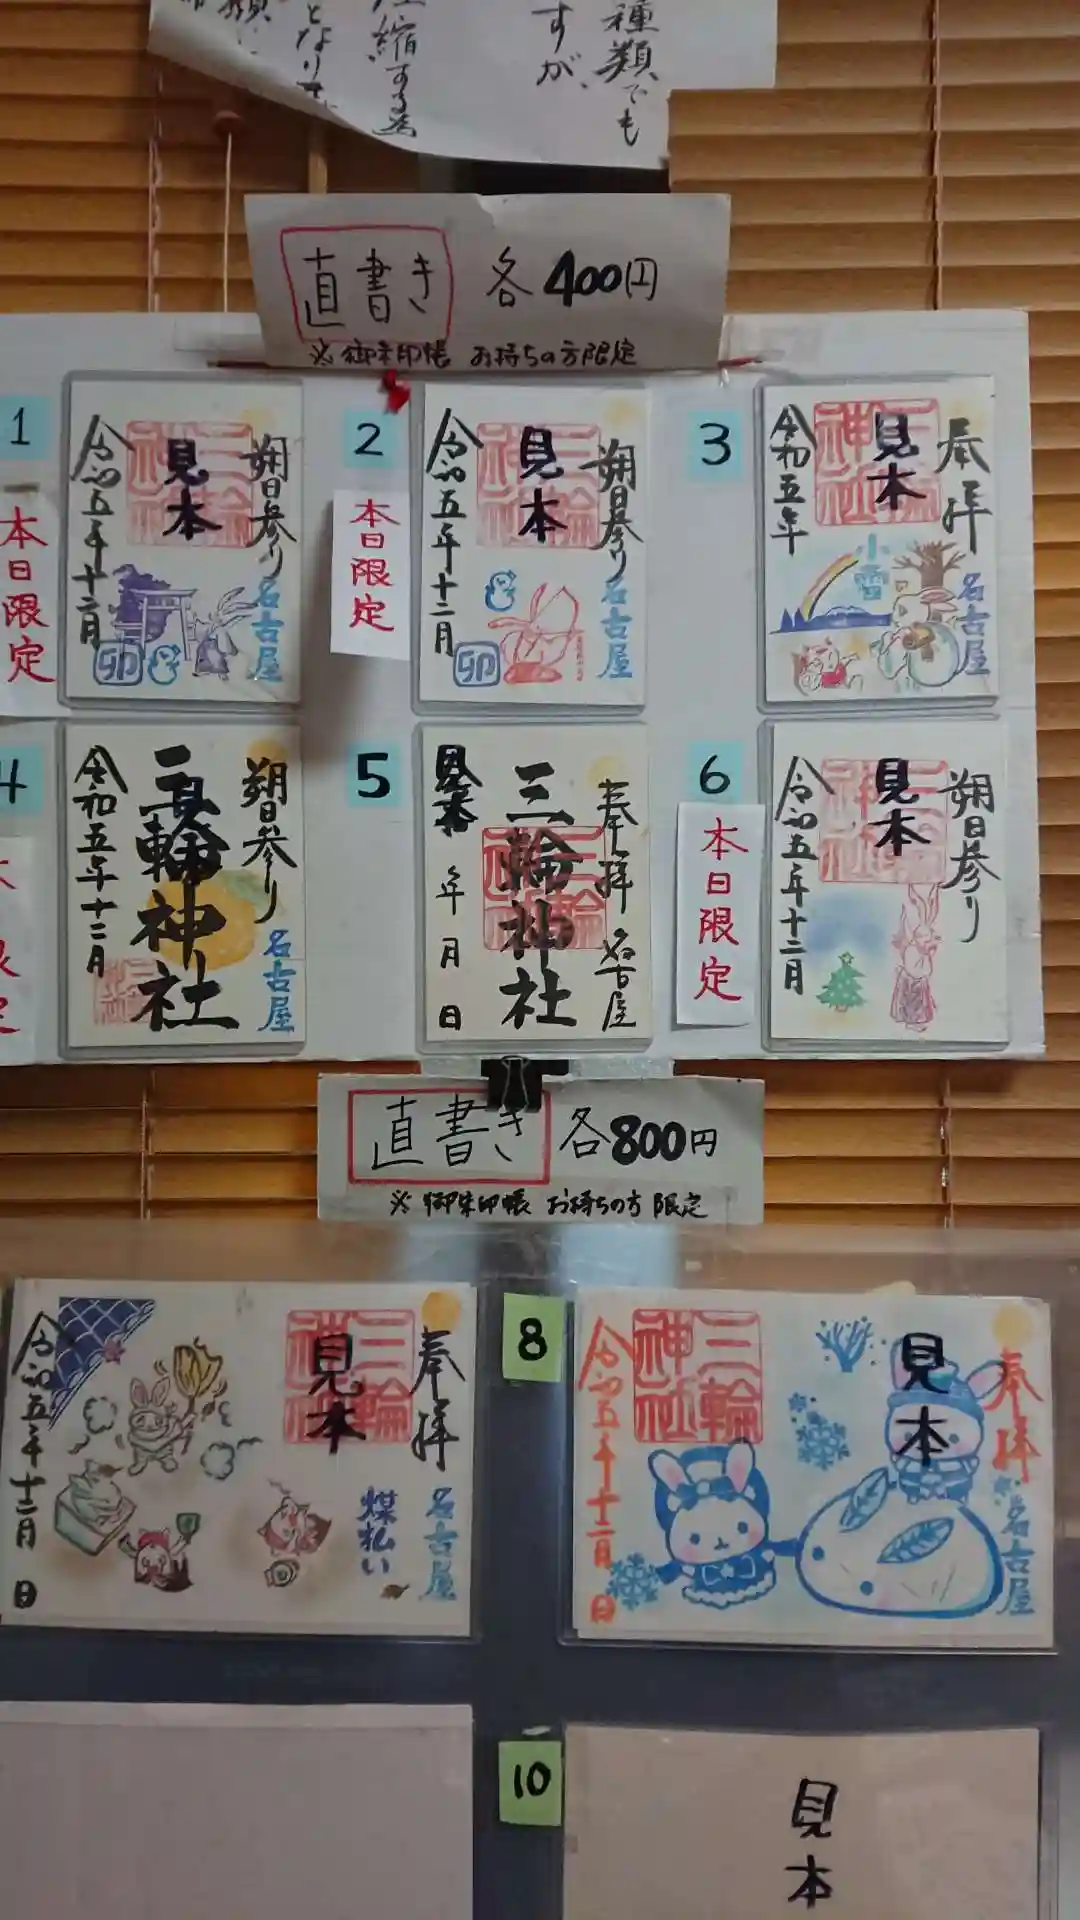 種類でも
すが、
縮する
となりま
直書き 各400円
※御朱印帳 お持ちの方限定
1
本日限定
朔日参り
名古屋
三輪神社
見本
令和五年十二月
卯
2
本日限定
朔日参り
名古屋
三輪神社
見本
令和五年十二月
卯
3
奉拝
名古屋
三輪神社
見本
小雪
令和五年
4
朔日参り
名古屋
三輪神社
令和五年十二月
5
奉拝
名古屋
三輪神社
三輪神社
見本
年月日
6
本日限定
朔日参り
三輪神社
見本
令和五年十二月
直書き 各800円
※御朱印帳 お持ちの方限定
奉拝
名古屋
煤払い
三輪神社
見本
令和五年十二月 日
8
奉拝
名古屋
見本
三輪神社
令和五年十二月 日
10
見本